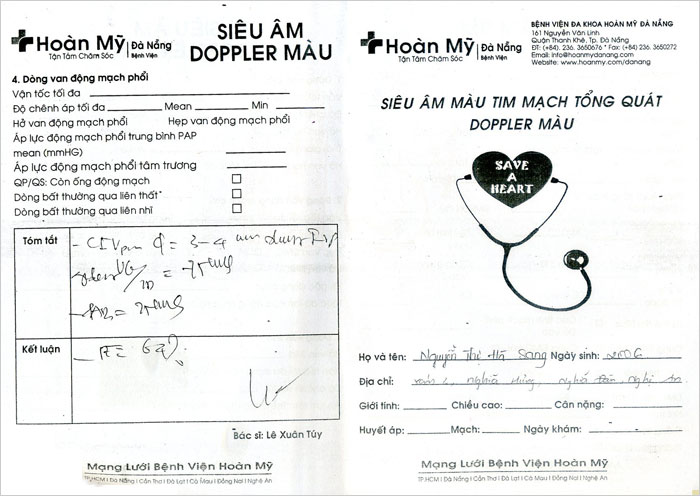 Hoàn Mỹ Đà Nẵng
Bệnh Viện
Tận Tâm Chăm Sóc
SIÊU ÂM
DOPPLER MÀU
4. Dòng van động mạch phổi
Vận tốc tối đa
Độ chênh áp tối đa Mean Min
Hở van động mạch phổi Hẹp van động mạch phổi
Áp lực động mạch phổi trung bình PAP
mean (mmHG)
Áp lực động mạch phổi tâm trương
QP/QS: Còn ống động mạch
Dòng bất thường qua liên thất
Dòng bất thường qua liên nhĩ
Tóm tắt
= 3-4
Kết luận
Bác sĩ: Lê Xuân Túy
Mạng Lưới Bệnh Viện Hoàn Mỹ
TP.HCM I Đà Nẵng I Cần Thơ I Đà Lạt I Cà Mau I Đồng Nai I Nghệ An
Hoàn Mỹ Đà Nẵng
Bệnh Viện
Tận Tâm Chăm Sóc
BỆNH VIỆN ĐA KHOA HOÀN MỸ ĐÀ NẴNG
161 Nguyễn Văn Linh
Quận Thanh Khê, Tp. Đà Nẵng
ĐT: (+84) 236. 3650676 * Fax: (+84) 236. 3650272
Email: info@hoanmydanang.com
Website: www.hoanmy.com/danang
SIÊU ÂM MÀU TIM MẠCH TỔNG QUÁT
DOPPLER MÀU
SAVE
A
HEART
Họ và tên: Nguyễn Thị Hà Sang Ngày sinh:
Địa chỉ: Nghĩa Hưng, Nghĩa Đàn, Nghệ An
Giới tính: Chiều cao: Cân nặng:
Huyết áp: Mạch: Ngày khám:
Mạng Lưới Bệnh Viện Hoàn Mỹ
TP.HCM I Đà Nẵng I Cần Thơ I Đà Lạt I Cà Mau I Đồng Nai I Nghệ An